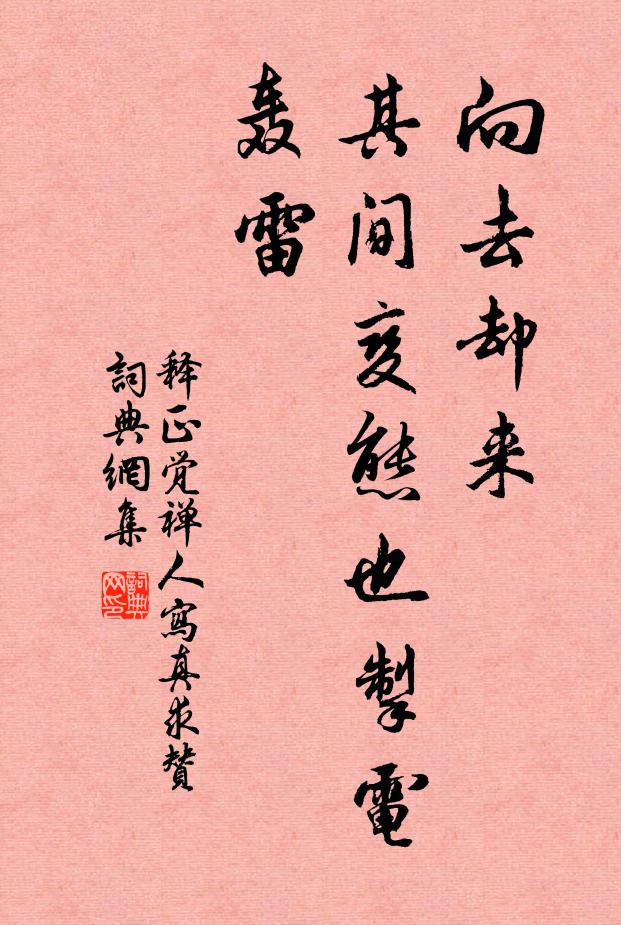 向去却来
其间变態也掣電
轰雷
释正觉禅人寫真求賛
詞典網集
詞典网印